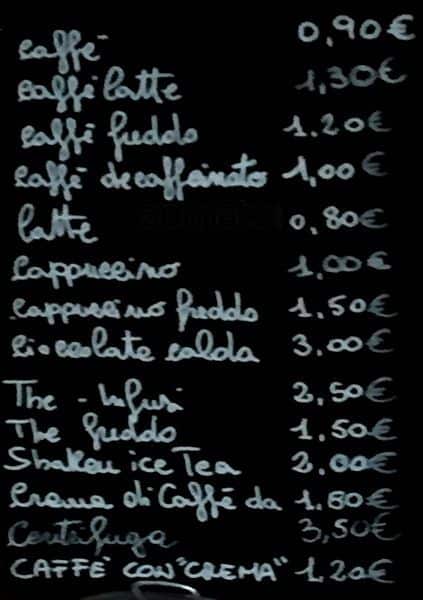 caffè 0,90€
caffè latte 1,30€
caffè freddo 1.20€
caffè decaffeinato 1,00€
latte 0,80€
cappuccino 1,00€
cappuccino freddo 1.50€
cioccolata calda 3.00€
The - Infusi 2,50€
The freddo 1.50€
Shakeu ice Tea 2.00€
Crema di Caffè da 1.80€
Centrifuga 3,50€
CAFFÈ CON "CREMA" 1,20€